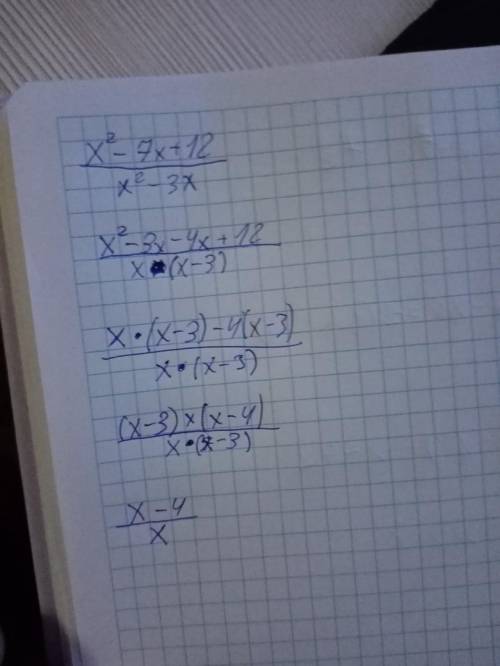 x² - 7x + 12
x² - 3x
x² - 3x - 4x + 12
x • (x - 3)
x • (x - 3) - 4(x - 3)
x • (x - 3)
(x - 3) × (x - 4)
x • (x - 3)
x - 4
x